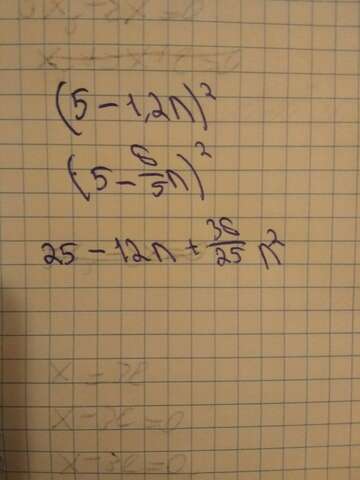 (5 - 1,2n)²
(5 - 6/5 n)²
25 - 12n + 36/25 n²